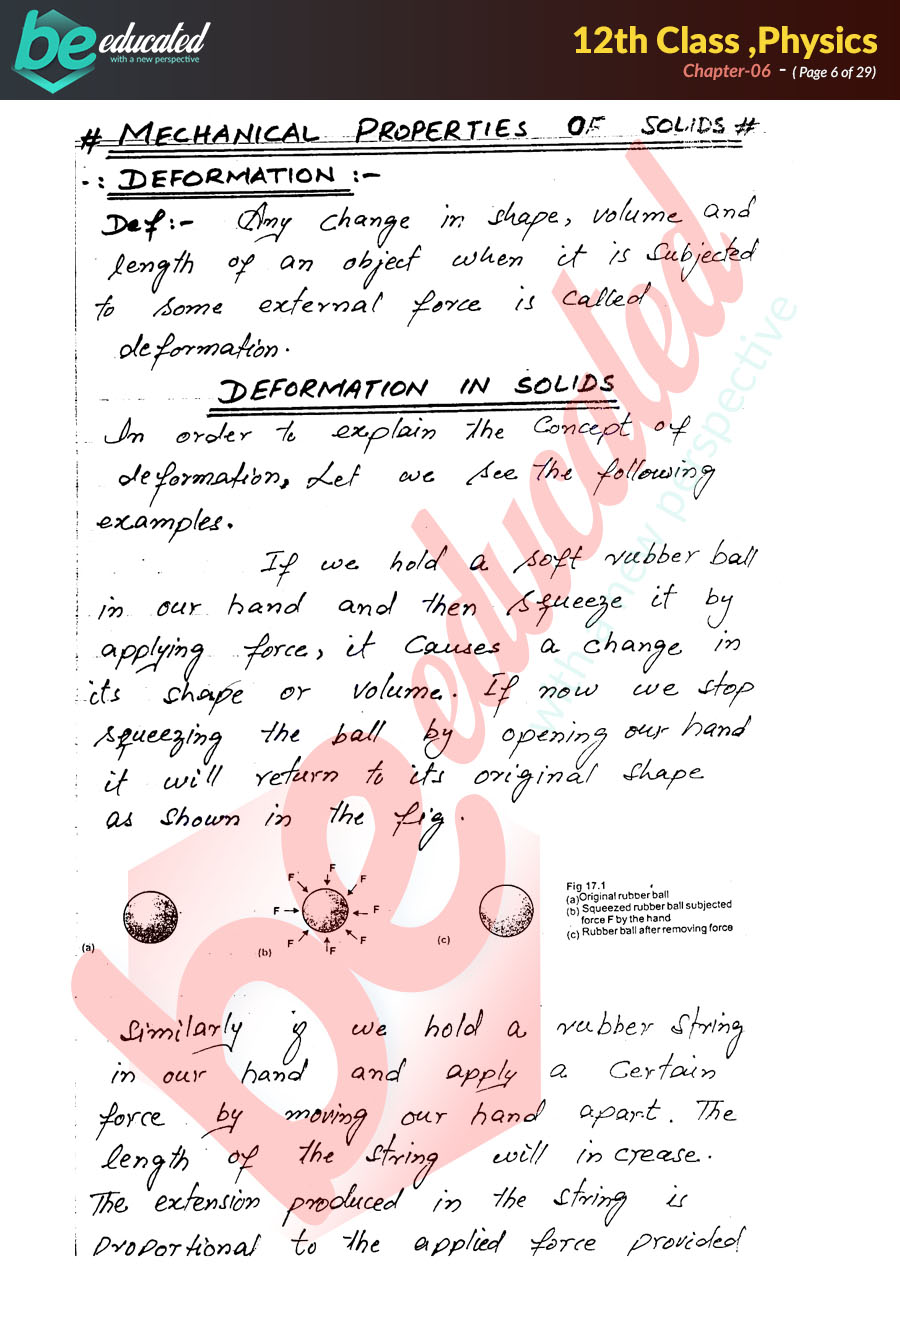 be educated
with a new perspective
12th Class ,Physics
Chapter-06 - ( Page 6 of 29)
# MECHANICAL PROPERTIES OF SOLIDS #
-: DEFORMATION :-
Def:- Any change in shape, volume and
length of an object when it is subjected
to some external force is called
deformation.
DEFORMATION IN SOLIDS
In order to explain the Concept of
deformation, Let we see the following
examples.
If we hold a soft rubber ball
in our hand and then squeeze it by
applying force, it causes a change in
its shape or volume. If now we stop
squeezing the ball by opening our hand
it will return to its original shape
as shown in the fig.
F F F
F F
F F F
(a) (b) (c)
Fig 17.1
(a)Original rubber ball
(b) Squeezed rubber ball subjected
force F by the hand
(c) Rubber ball after removing force
Similarly if we hold a rubber string
in our hand and apply a certain
force by moving our hand apart. The
length of the string will increase.
The extension produced in the string is
proportional to the applied force provided
be educated
with a new perspective